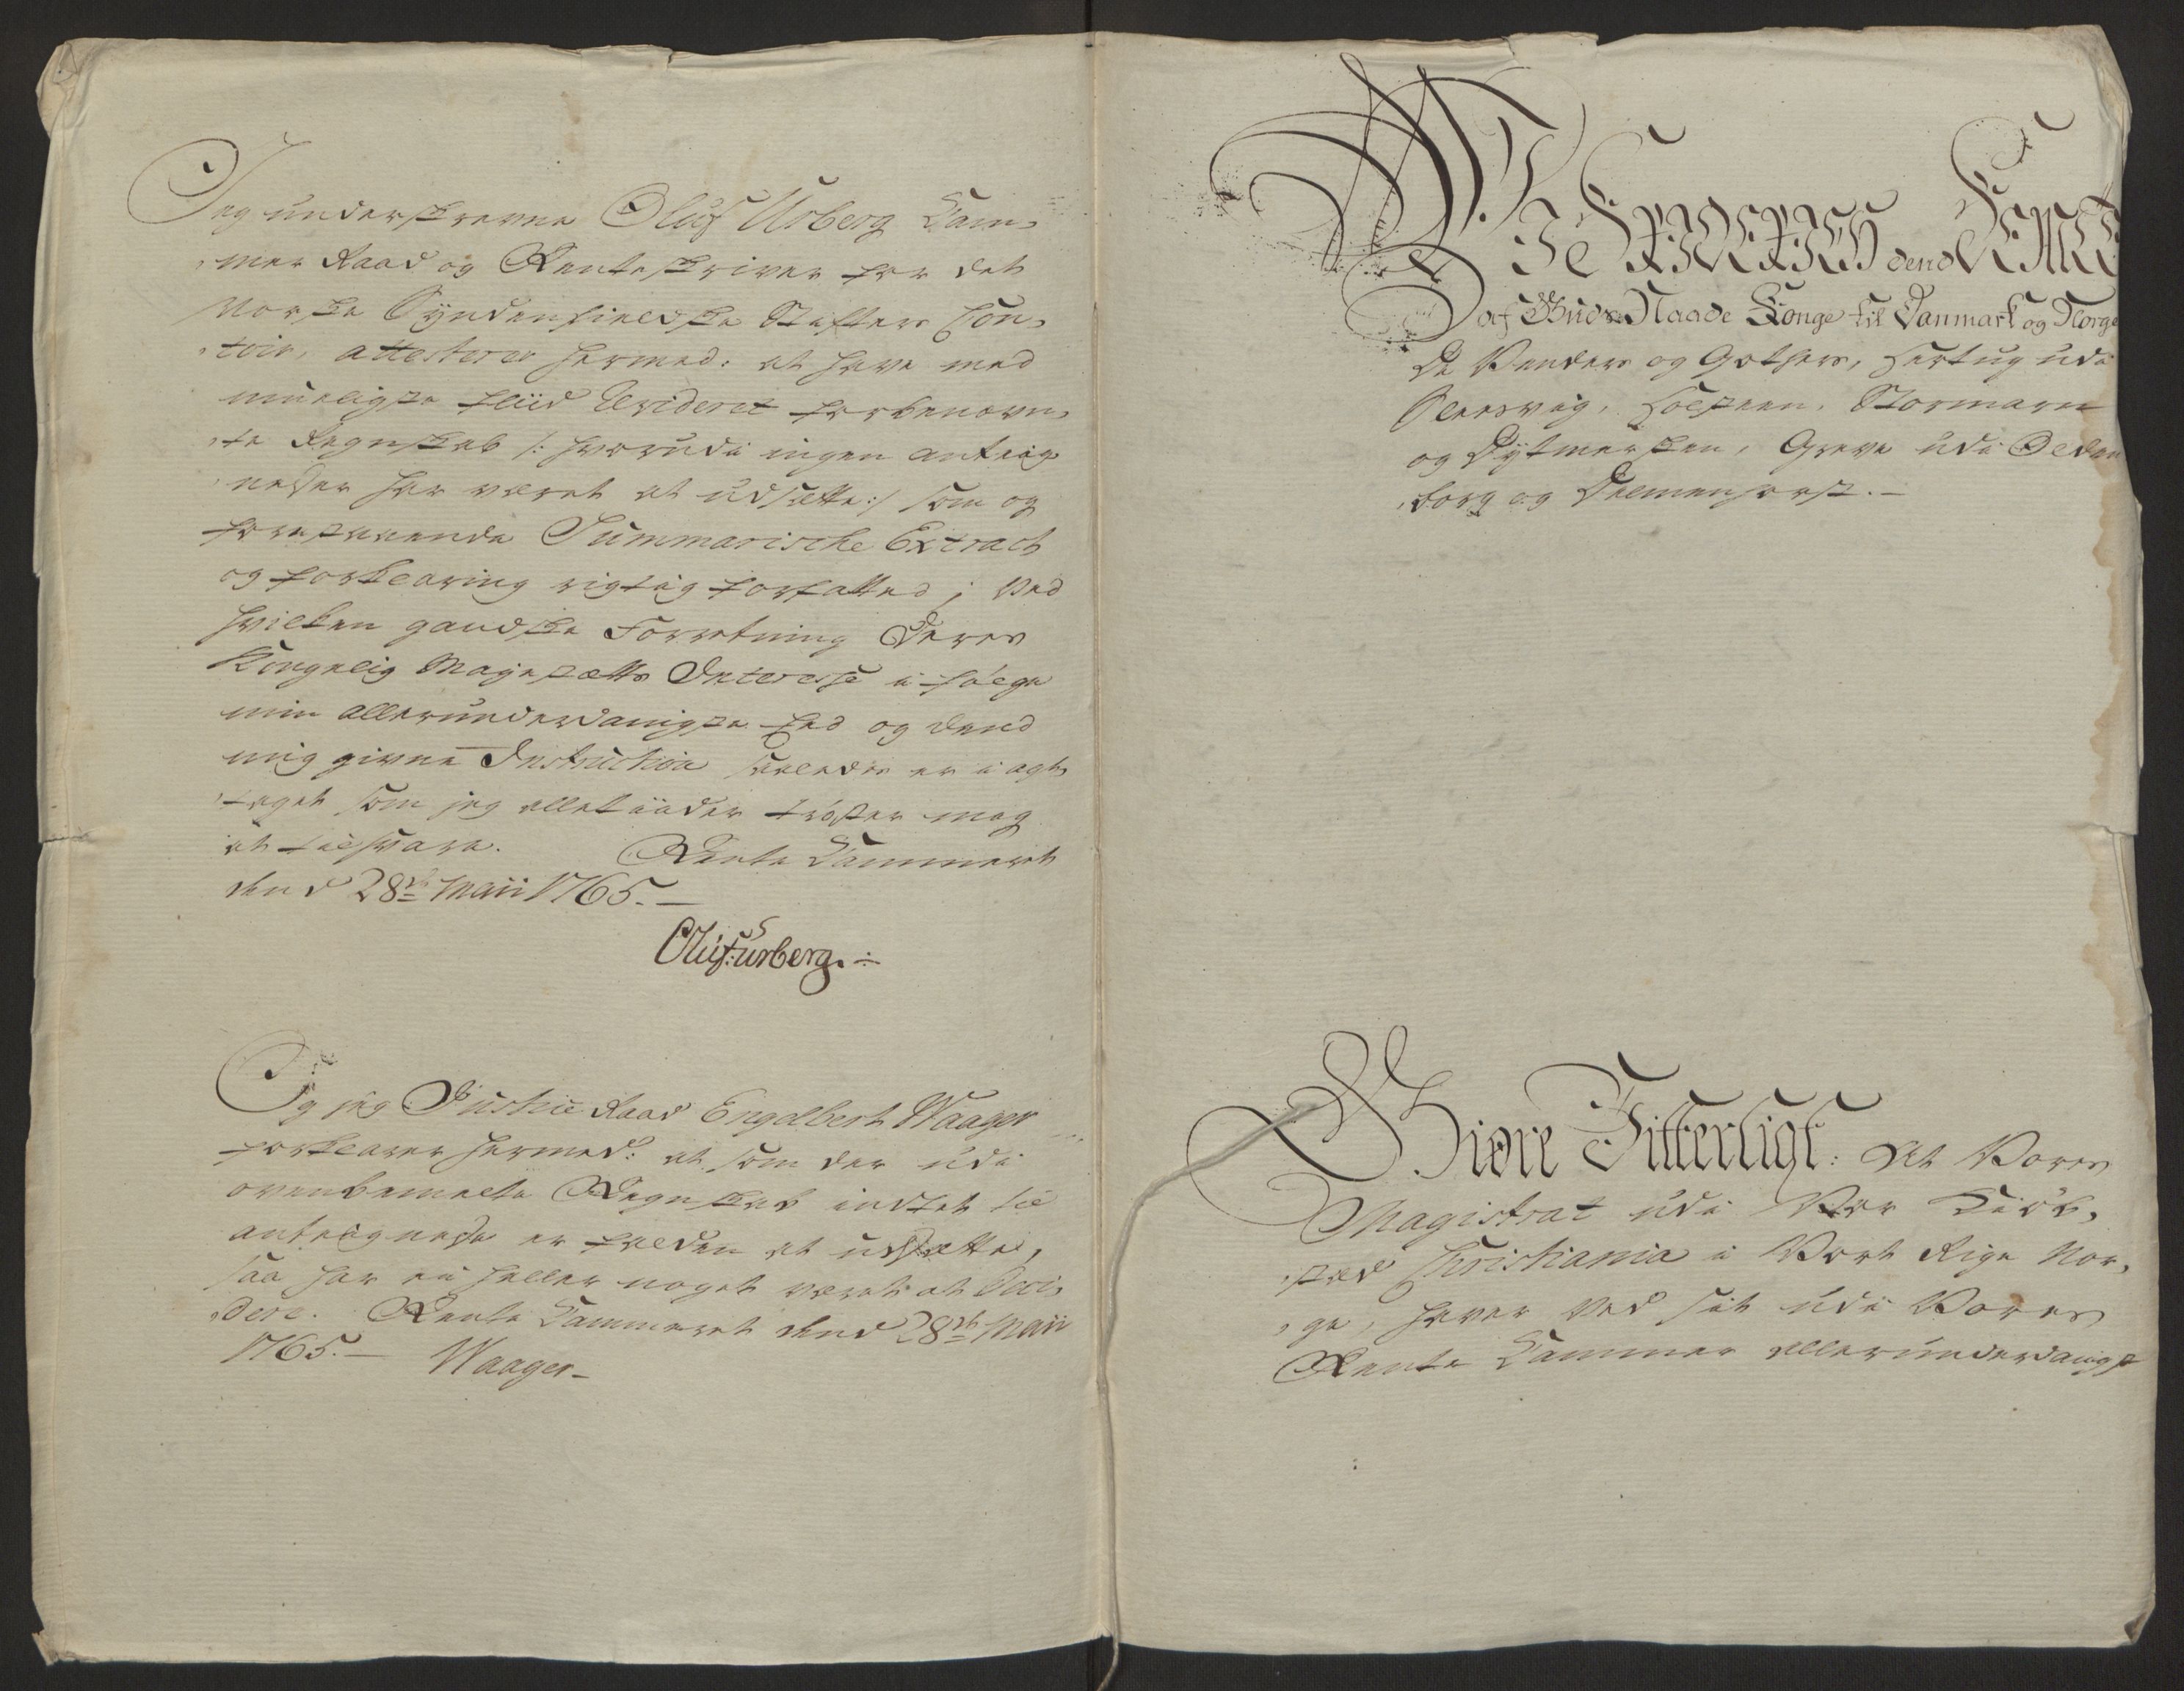 Jeg underskrevne Oluf Urberg Cam¬
„mer Raad og Renteskriver for det
Norske Syndenfieldske Stifters Con¬
„toir, attesterer hermed: at have med
mueligste fliid Revideret forbenævn¬
„te Regnskab /: hvorudi ingen anteig¬
„nelser har været at udsætte :/ som og
forestaaende Summariske Extract
og forklaring rigtig forfatted; ved
hvilken gandske Forretning Deres
Kongelig Mayestætts Interesse i følge
min allerunderdanigste Eed og dend
mig givne Instruction saaledes er i agt¬
„taget som jeg allet iider trøster mig
at tilsvare. Rente Cammeret
den d 28de Maii 1765.—
Oluf Urberg.
Og jeg Justice Raad Engelbert Waager
forklarer hermed: at som der udi
ovenbemelte Regnskab indtet til
anteignelse er falden at udsætte,
saa har ei heller noget været at Deci¬
„dere. Rente Cammeret dend 28de Maii
1765.— Waager
Wi Friderich dend Femte
af Guds Naade Konge til Danmark og Norge
De Venders og Gothers, Hertug udi
Slesvig, Holsteen, Stormarn
og Dytmersken, Greve udi Olden
„borg og Delmenhorst.—
Giøre Vitterligt: At Vores
Magistrat udi Vor Kiøb¬
„sted Christiania i Vort Rige Nor¬
„ge, haver ved sit udi Vores
Rente Cammer allerunderdanigst